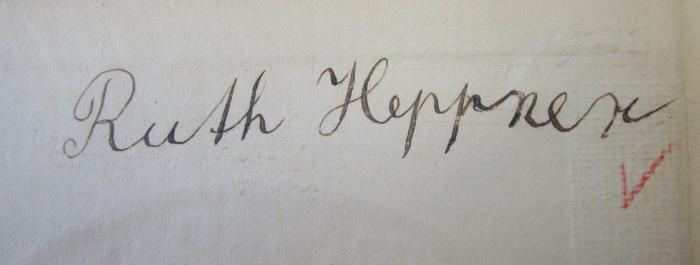 Ruth Heppner